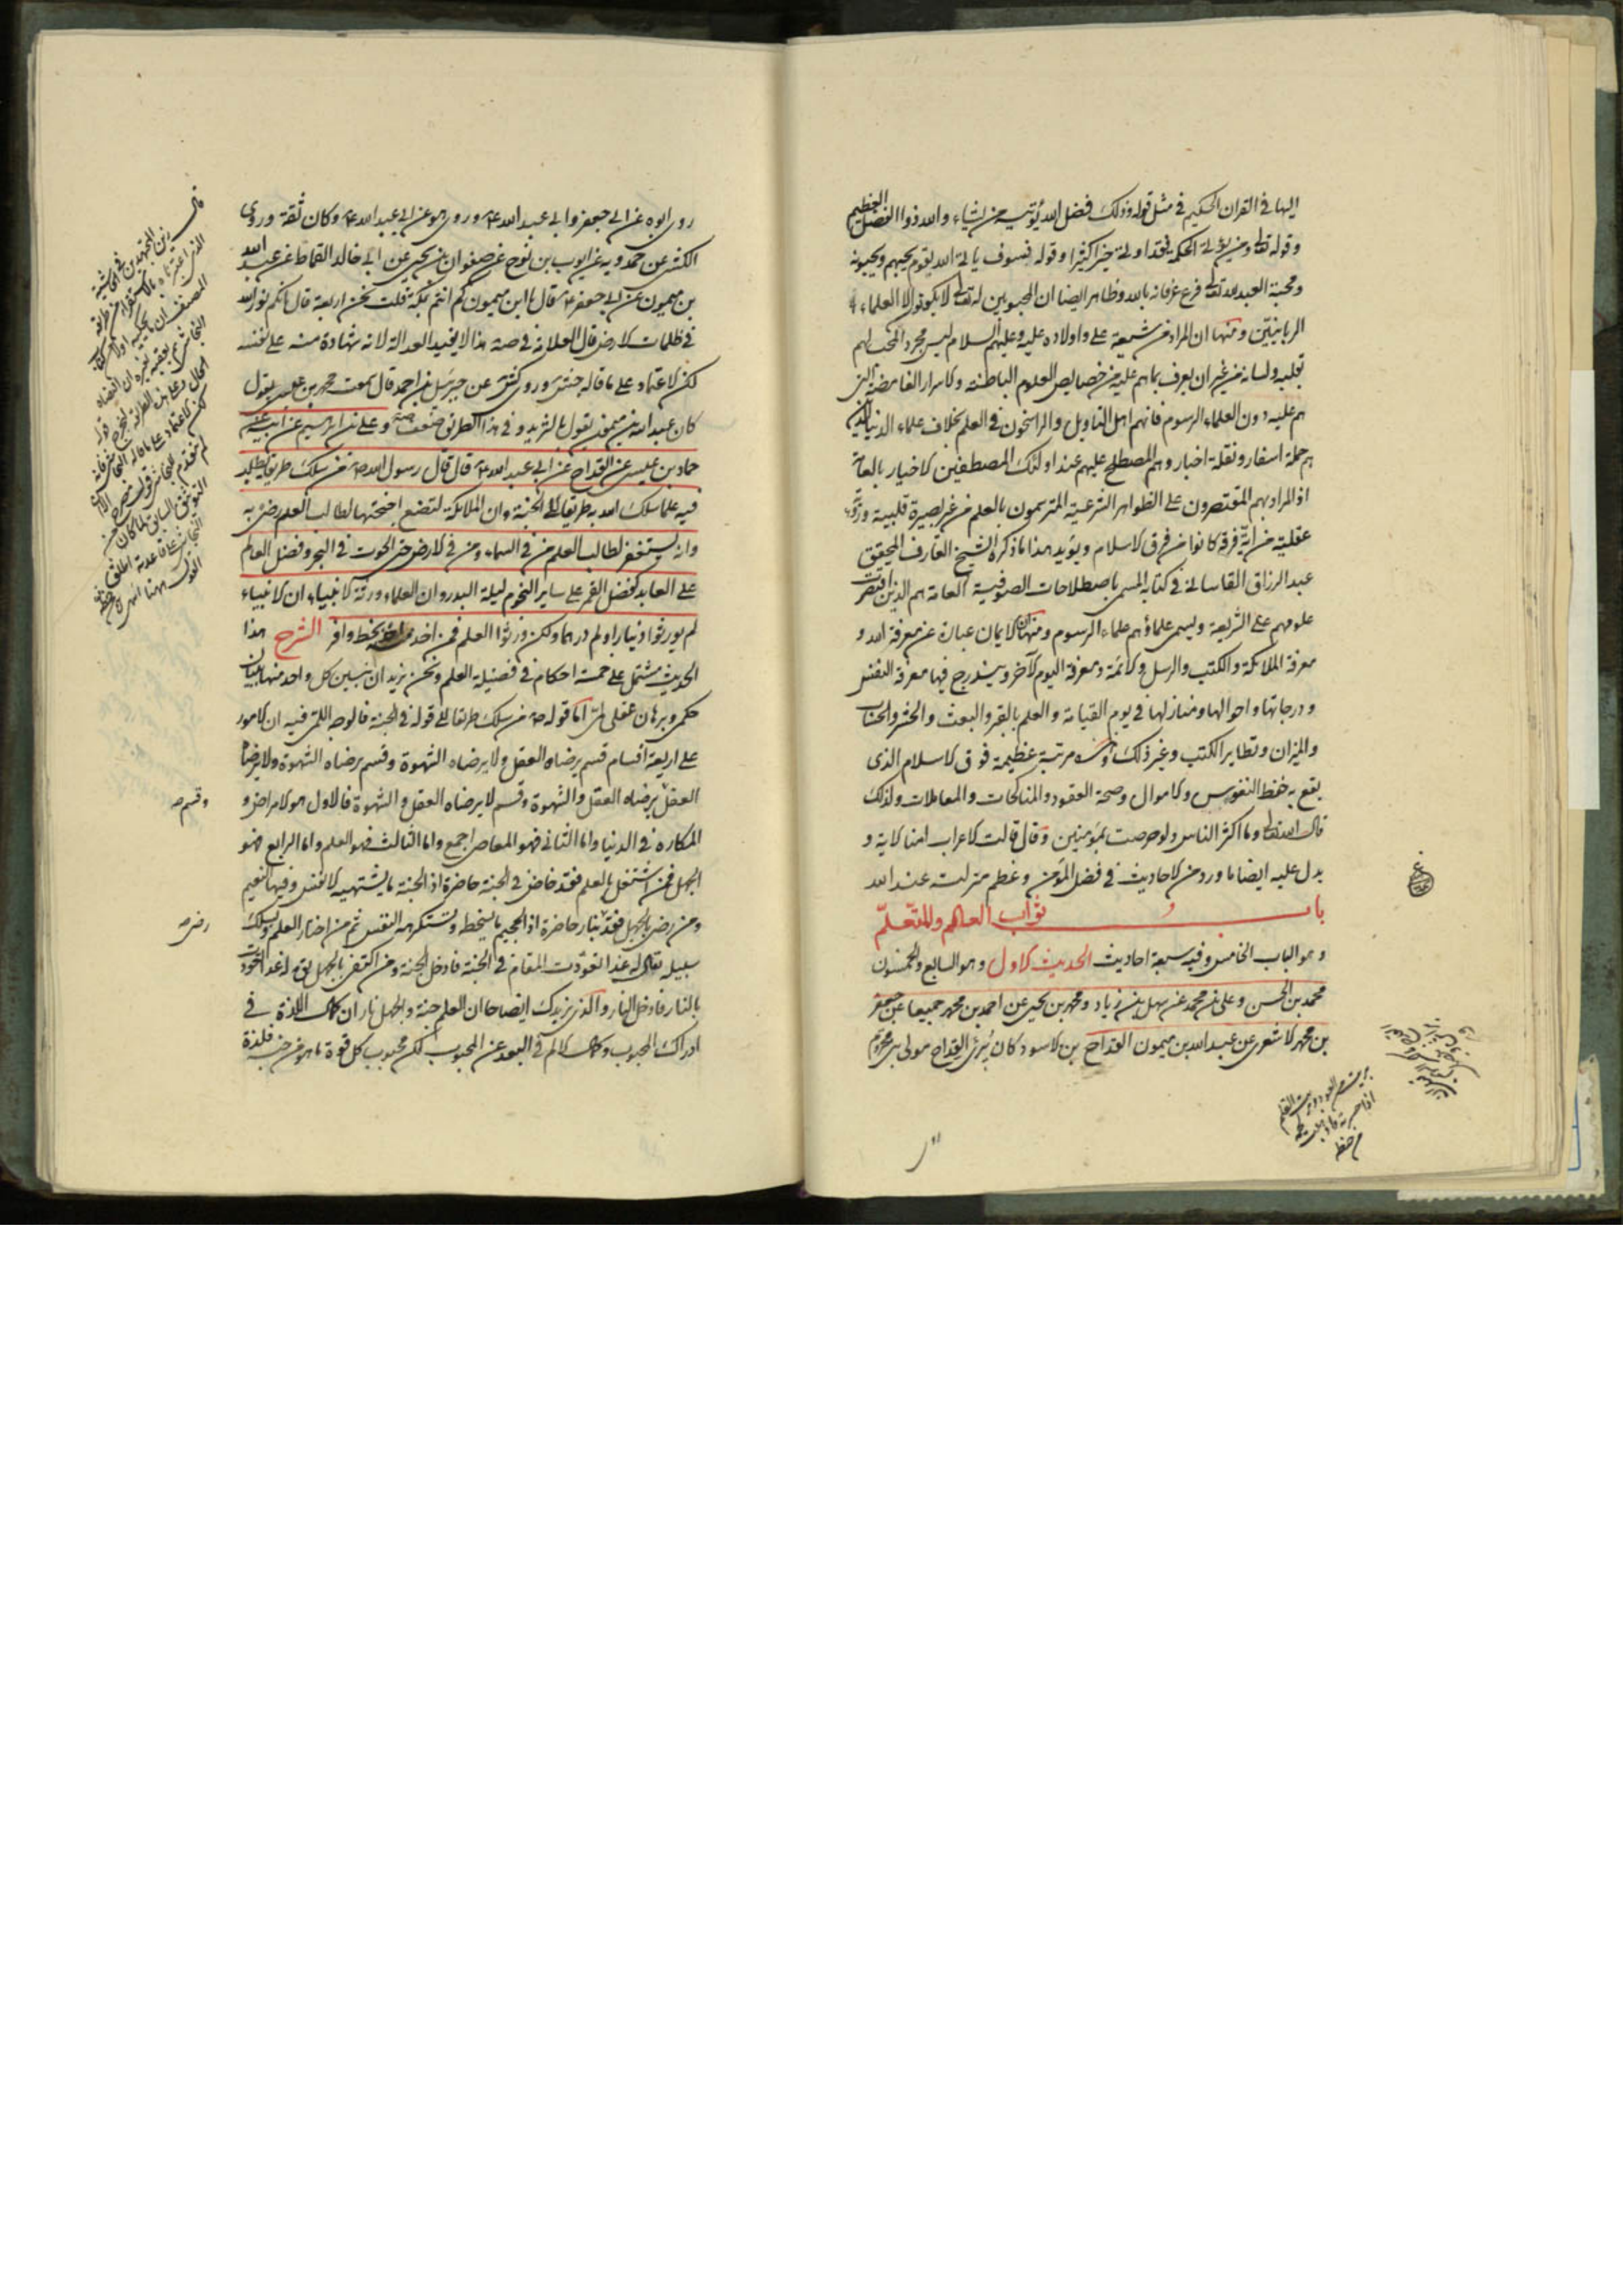 اليها فى القران الحكيم فى مثل قوله وذلك فضل الله يؤتيه من يشاء والله ذو الفضل العظيم
وقوله تعالى ومن يؤتى الحكمة فقد اوتى خيرا كثيرا وقوله فسوف ياتى الله بقوم يحبهم ويحبونه
ومحبة العبد لله تعالى فرع عرفانه بالله وظاهر ايضا ان المحبوبين له تعالى لا يكونون الا العلماء
الربانيين ومنها ان المراد من شيعة على واولاده عليه وعليهم السلام ليس مجرد المحب لهم
بقلبه ولسانه من غير ان يعرف ما هم عليه من خصايص العلوم الباطنة والاسرار الغامضة التى
هم عليه دون العلماء الرسوم فانهم اهل التاويل والراسخون فى العلم بخلاف علماء الدنيا الذين
هم حملة اسفار ونقلة اخبار وهم المصطلح عليهم عند اولئك المصطفين الاخيار بالعامة
اذ المراد بهم المقتصرون على الظواهر الشرعية المترسمون بالعلم من غير بصيرة قلبية
عقلية من اية فرقة كانوا من فرق الاسلام ويؤيد هذا ما ذكره الشيخ العارف المحقق
عبد الرزاق القاسانى فى كتابه المسمى باصطلاحات الصوفية العامة هم الذين اقتصرت
علومهم على الشريعة ويسمى علماؤهم علماء الرسوم ومنها ان الايمان عبارة عن معرفة الله و
معرفة الملائكة والكتب والرسل والائمة ومعرفة اليوم الاخر ويندرج فيها معرفة النفس
ودرجاتها واحوالها ومنازلها فى يوم القيامة والعلم بالقبر والبعث والحشر والحساب
والميزان وتطاير الكتب وغير ذلك وهذه مرتبة عظيمة فوق الاسلام الذى
يقع به حفظ النفوس والاموال وصحة العقود والمناكحات والمعاملات ولذلك
قال الله تعالى وما اكثر الناس ولو حرصت بمؤمنين وقال قالت الاعراب امنا الاية و
يدل عليه ايضا ما ورد من الاحاديث فى فضل المؤمن وعظم منزلته عند الله
باب ثواب العالم والمتعلم
وهو الباب الخامس وفيه سبعة احاديث الحديث الاول وهو السابع والخمسون
محمد بن الحسن وعلى بن محمد عن سهل بن زياد ومحمد بن يحيى عن احمد بن محمد جميعا عن جعفر
بن محمد الاشعرى عن عبد الله بن ميمون القداح بن الاسود كان يبرى القداح مولى بنى مخزوم
روى ابوه عن ابى جعفر وابى عبد الله ع وروى هو عن ابى عبد الله ع وكان ثقة وروى
الكشى عن حمدويه عن ايوب بن نوح عن صفوان بن يحيى عن ابى خالد القماط عن عبد الله
بن ميمون عن ابى جعفر ع قال يا ابن ميمون كم انتم بمكة قلت نحن اربعة قال انكم نور الله
فى ظلمات الارض قال العلامة فى صه هذا لا يفيد العدالة لانه شهادة منه على نفسه
لكن الاعتماد على ما قاله جش وروى كش عن جبرئيل بن احمد قال سمعت محمد بن عيسى يقول
كان عبد الله بن ميمون يقول بالتزيد وفى هذا الطريق ضعف صه وعلى بن ابراهيم عن ابيه عن
حماد بن عيسى عن القداح عن ابى عبد الله ع قال قال رسول الله ص من سلك طريقا يطلب
فيه علما سلك الله به طريقا الى الجنة وان الملائكة لتضع اجنحتها لطالب العلم رضى به
وانه يستغفر لطالب العلم من فى السماء ومن فى الارض حتى الحوت فى البحر وفضل العالم
على العابد كفضل القمر على ساير النجوم ليلة البدر وان العلماء ورثة الانبياء ان الانبياء
لم يورثوا دينارا ولم درهما ولكن ورثوا العلم فمن اخذ منه اخذ بحظ وافر الشرح هذا
الحديث مشتمل على خمسة احكام فى فضيلة العلم ونحن نريد ان نبين كل واحد منها ببيان
حكمى وبرهان عقلى لمى اما قوله ص من سلك طريقا الى قوله فى الجنة فالوجه اللمى فيه ان الامور
على اربعة اقسام قسم يرضاه العقل ولا يرضاه الشهوة وقسم يرضاه الشهوة ولا يرضاه
العقل يرضاه العقل والشهوة وقسم لا يرضاه العقل والشهوة فالاول هو الامراض و
وقسم صه
المكاره فى الدنيا واما الثانى فهو المعاصى اجمع واما الثالث فهو العلم واما الرابع فهو
الجهل فمن اشتغل بالعلم فقد خاض فى الجنة حاضرة اذ الجنة ما يشتهيه الانفس وفيها النعيم
ومن رضى بالجهل فقد بنار حاضرة اذ الجحيم ما يسخطه وتستكرهه النفس ثم من اختار العلم وسلك
رضى صه
سبيله يقال له غدا تعودت المقام فى الجنة فادخل الجنة ومن اكتفى بالجهل يق له غدا تعودت
بالنار فادخل النار والذى يزيدك ايضاحا ان العلم جنة والجهل نار ان كمال اللذة فى
ادراك المحبوب وكمال الالم فى البعد عن المحبوب لكن محبوب كل قوة ما هو من جنسه فلذة